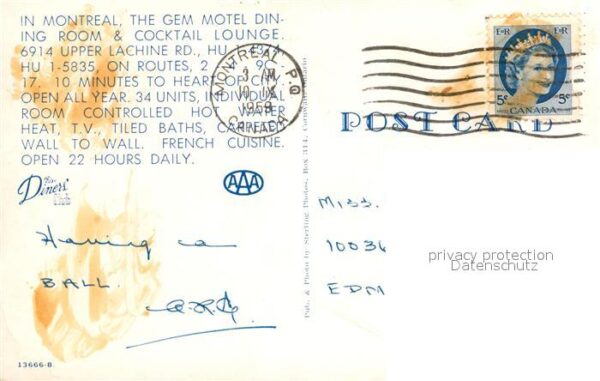 IN MONTREAL, THE GEM MOTEL DIN-
ING ROOM & COCKTAIL LOUNGE.
6914 UPPER LACHINE RD., HU
HU 1-5835, ON ROUTES, 2
17. 10 MINUTES TO HEART OF
OPEN ALL YEAR. 34 UNITS,
ROOM CONTROLLED HOT WATER
HEAT, T.V., TILED BATHS, CARPETED
WALL TO WALL. FRENCH CUISINE.
OPEN 22 HOURS DAILY.
The Diners' Club
AAA
Having a
BALL.
13666-B
Pub. & Photo by Sterling Photos, Box 314, Cornwall, Ontario
MONTREAL P.Q
3 PM
CANADA
EIIR EIIR
5c CANADA 5c
POST CARD
Miss.
10036
EDM
privacy protection
Datenschutz